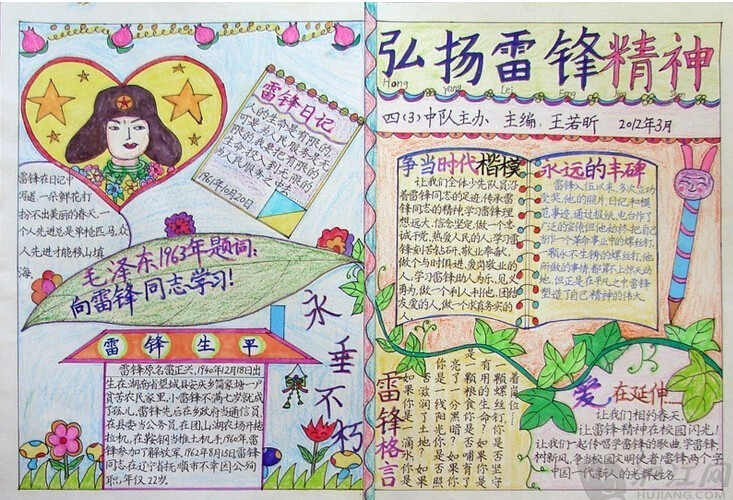 弘扬雷锋精神
Hong yang Lei Feng
四(3)中队主办、主编:王若昕 2012年3月
雷锋在日记中
写道:一朵鲜花打
扮不出美丽的春天,一
个人先进总是单枪匹马,众
人先进才能移山填
海。
雷锋日记
人的生命是有限的
可是,为人民服务是无
限的,我要把有限的
生命,投入到无限的
为人民服务之中去。
1961年10月20日
毛泽东1963年题词:
向雷锋同志学习!
永垂不朽
雷锋生平
雷锋原名雷正兴,1940年12月18日出
生在湖南省望城县安庆乡简家塘一户
贫苦农民家里,小雷锋不满七岁就成
了孤儿。雷锋先后在乡政府当通信员,
在县委当公务员,在团山湖农场开拖
拉机,在鞍钢当推土机手,1960年,雷
锋参加了解放军,1962年8月15日雷锋
同志在辽宁省抚顺市不幸因公殉
职,年仅22岁。
争当时代楷模
让我们全体少先队员沿
着雷锋同志的足迹,传承雷
锋同志的精神,学习雷锋理
想远大、信念坚定,做一个忠
诚于党、热爱人民的人;学习雷
锋刻苦钻研、敬业奉献,
做个与时俱进、爱岗敬业的
人;学习雷锋助人为乐、见义
勇为,做一个利人利他、团结
友爱的人,做一个求真务实的
人。
永远的丰碑
雷锋入伍以来,多次立功
受奖,他的照片、日记和模
范事迹,通过报纸、电台作了
广泛的宣传。但他始终把自己
当作一个革命事业中的螺丝钉,
一颗永不生锈的螺丝钉。他
所做的事情,都算不上惊天动
地,但正是在平凡之中雷锋
塑造了自己精神的伟大。
雷锋格言
如果你是一滴水,你是
否滋润了一寸土地?如果
你是一线阳光,你是否照
亮了一分黑暗?如果你
是一颗粮食,你是否哺育了
有用的生命?如果你是
一颗最小的螺丝钉,你是否坚守
着岗位……
爱在延伸……
让我们相约春天,
让雷锋精神在校园闪光!
让我们一起传唱学雷锋的歌曲,学雷锋,
树新风,争当校园文明使者!雷锋两个字
中国一代新人的光辉姓名
HUJIANG.COM